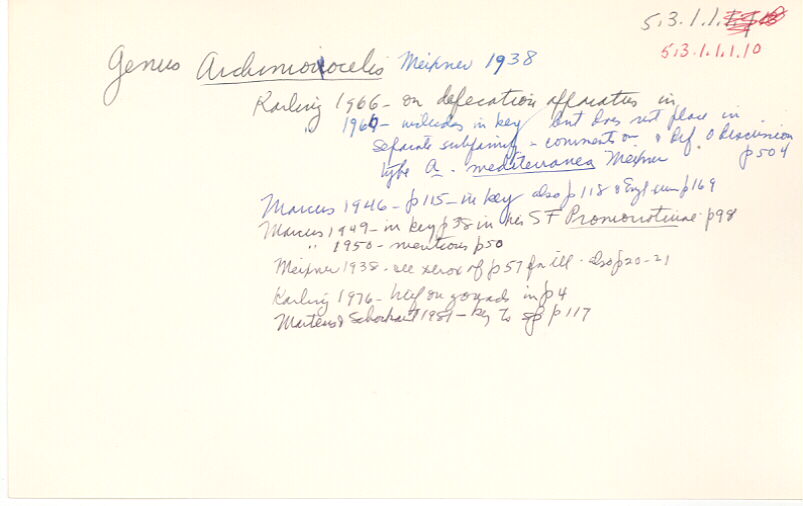 5.3.1.1.
5.3.1.1.1.10
Genus Archimonocelis Meixner 1938
Karling 1966 - on defecation apparatus in
" 1966 - includes in key but does not place in
separate subfamily - comments on & Def. & Discussion
type A. mediterranea Meixner p504
Marcus 1946 - p115 - in key also p118 & Engl sum p169
Marcus 1949 - in key p38 in his SF Promonotinae p98
" 1950 - mentions p50
Meixner 1938 - see xerox of p57 for ill - also p20-21
Karling 1976 - brief on gonads in p4
Martens & Schockaert 1981 - key to sp p117